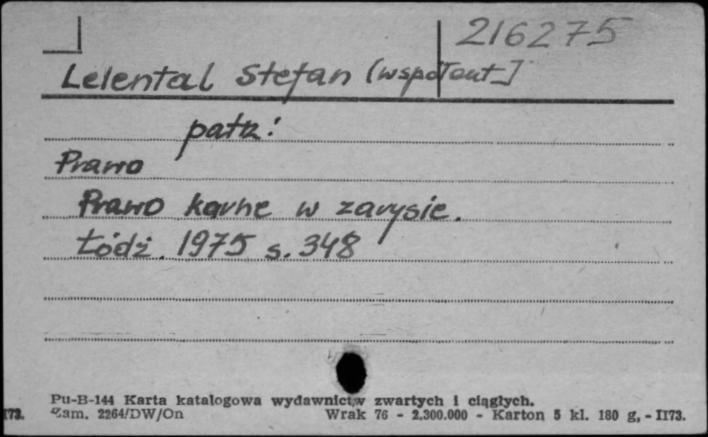 216275
Lelental Stefan (współaut.]
patrz:
Prawo
Prawo karne w zarysie.
Łódź. 1975 s. 348
Pu-B-144 Karta katalogowa wydawnictw zwartych i ciągłych.
173. Zam. 2264/DW/On Wrak 76 - 2.300.000 - Karton 5 kl. 180 g, - I173.